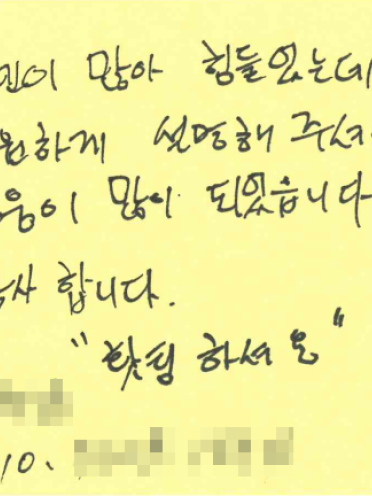 민이 많아 힘들었는데
원하게 설명해 주셔
움이 많이 되었습니다
사합니다.
"홧팅하셔요"
10.